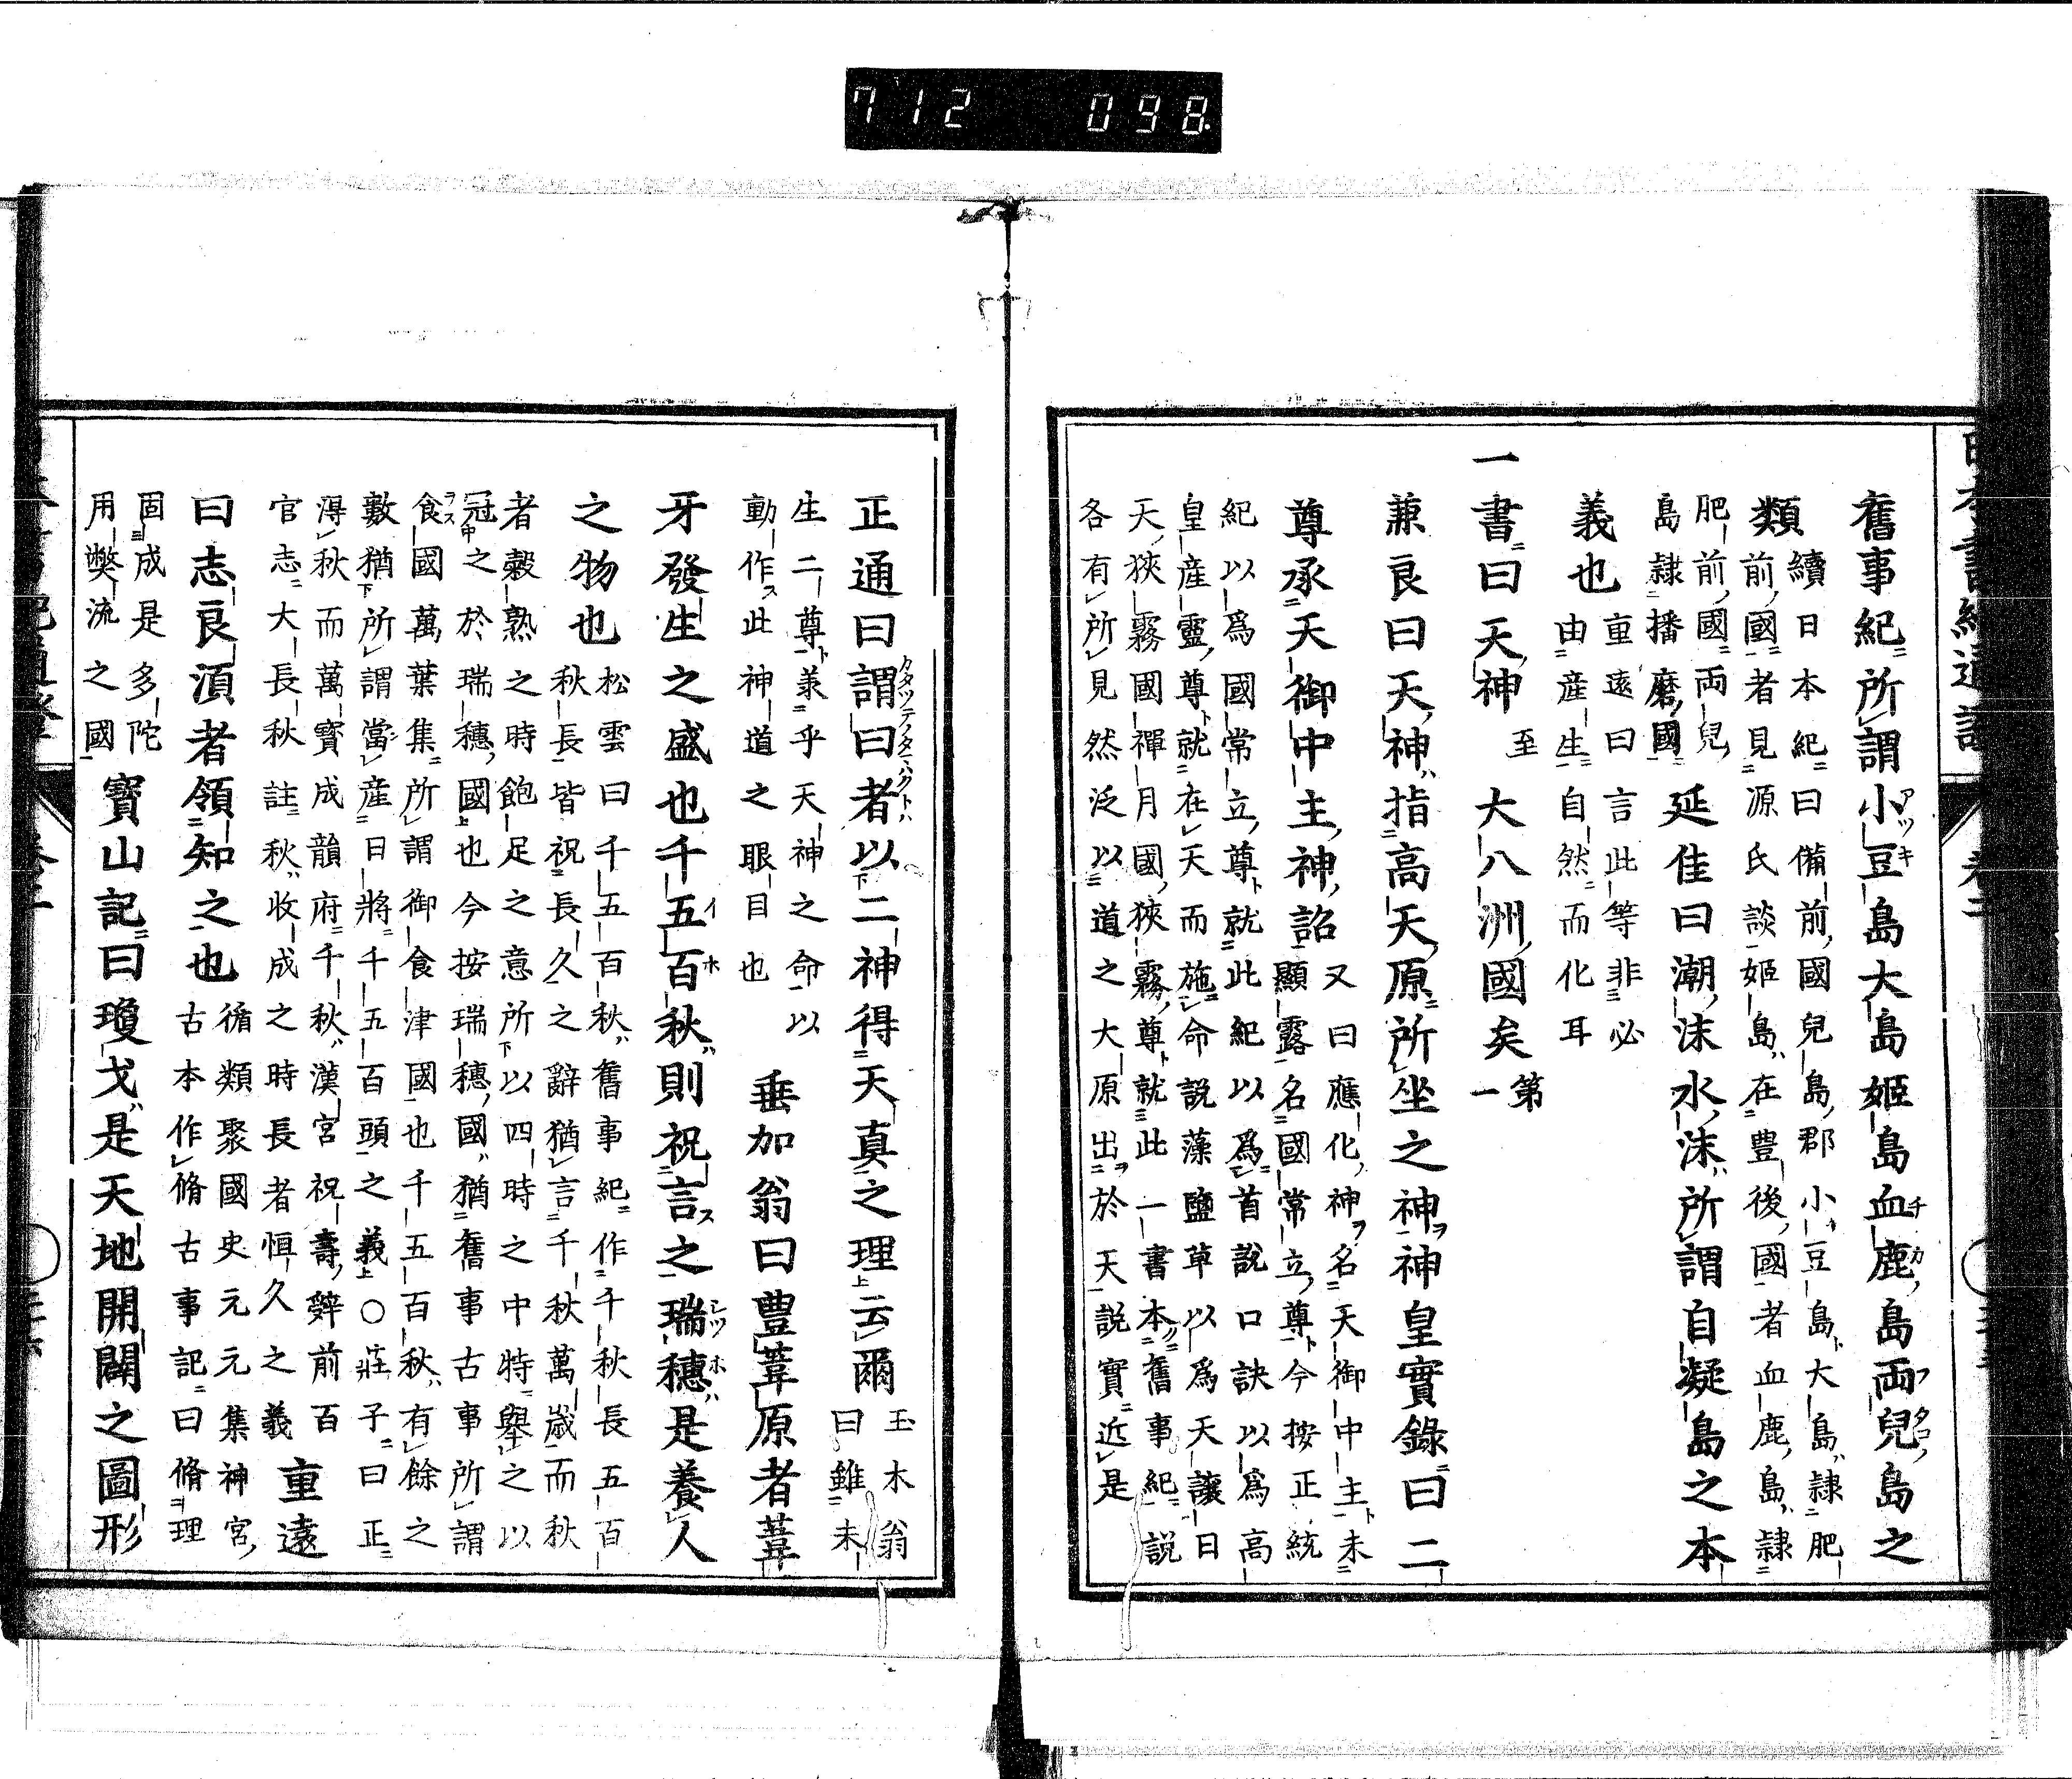 712 098
舊事紀所謂小豆島大島姬島血鹿島兩兒島之
類
續日本紀曰備前國兒島郡小豆島大島隷肥
前國者見源氏談姬島在豊後國者血鹿島隷
肥前國兩兒
島隷播磨國
延佳曰潮沫水沫所謂自凝島之本
義也
重遠曰言此等非必
由産生自然而化耳
一書曰天神至大八洲國矣第一
兼良曰天神指高天原所坐之神神皇實錄曰二
尊承天御中主神詔
又曰應化神名天御中主未
顯露名國常立尊今按正統
紀以爲國常立尊就此紀以爲首說口訣以爲高
皇産靈尊就在天而施命説藻鹽草以爲天讓日
天狹霧國禪月國狹霧尊就此一書本舊事紀説
各有所見然泛以道之大原出於天説實近是
正通曰謂曰者以二神得天真之理云爾
玉木翁
曰雖未
生二尊兼乎天神之命以
動作此神道之眼目也
垂加翁曰豊葦原者葦
牙發生之盛也千五百秋則祝言之瑞穗是養人
之物也
松雲曰千五百秋舊事紀作千秋長五百
秋長皆祝長久之辭猶言千秋萬歲而秋
者穀熟之時飽足之意所以四時之中特擧之以
冠之於瑞穗國也今按瑞穗國猶舊事古事所謂
食國萬葉集所謂御食津國也千五百秋有餘之
數猶所謂當産日將千五百頭之義○莊子曰正
得秋而萬寶成韻府千秋漢宮祝壽辤前百
官志大長秋註秋收成之時長者恒久之義
重遠
曰志良湏者領知之也
循類聚國史元元集神宮
古本作脩古事記曰脩理
固成是多陀
用弊流之國
寶山記曰瓊戈是天地開闢之圖形